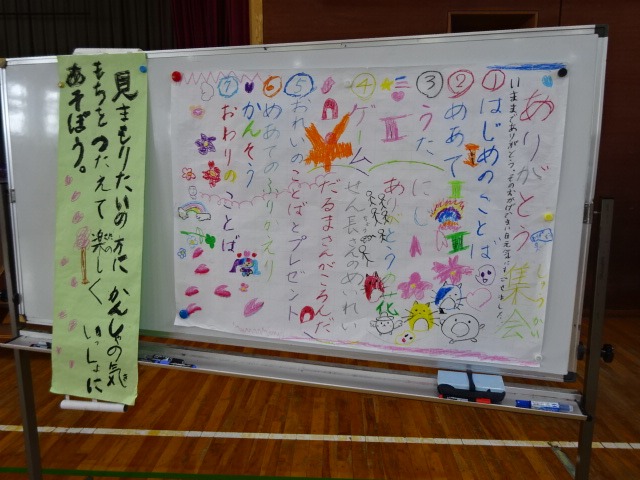 ありがとう集会
いままでありがとう。そのおかげで
①はじめのことば
②めあて
③うた
にじ
ありがとうの花
④ゲーム
せん長さんのめいれい
だるまさんがころんだ
⑤おれいのことばとプレゼント
⑥めあてのふりかえり
かんそう
⑦おわりのことば
見まもりたいの方に かんしゃの気
もちを つたえて 楽しく いっしょに
あそぼう。